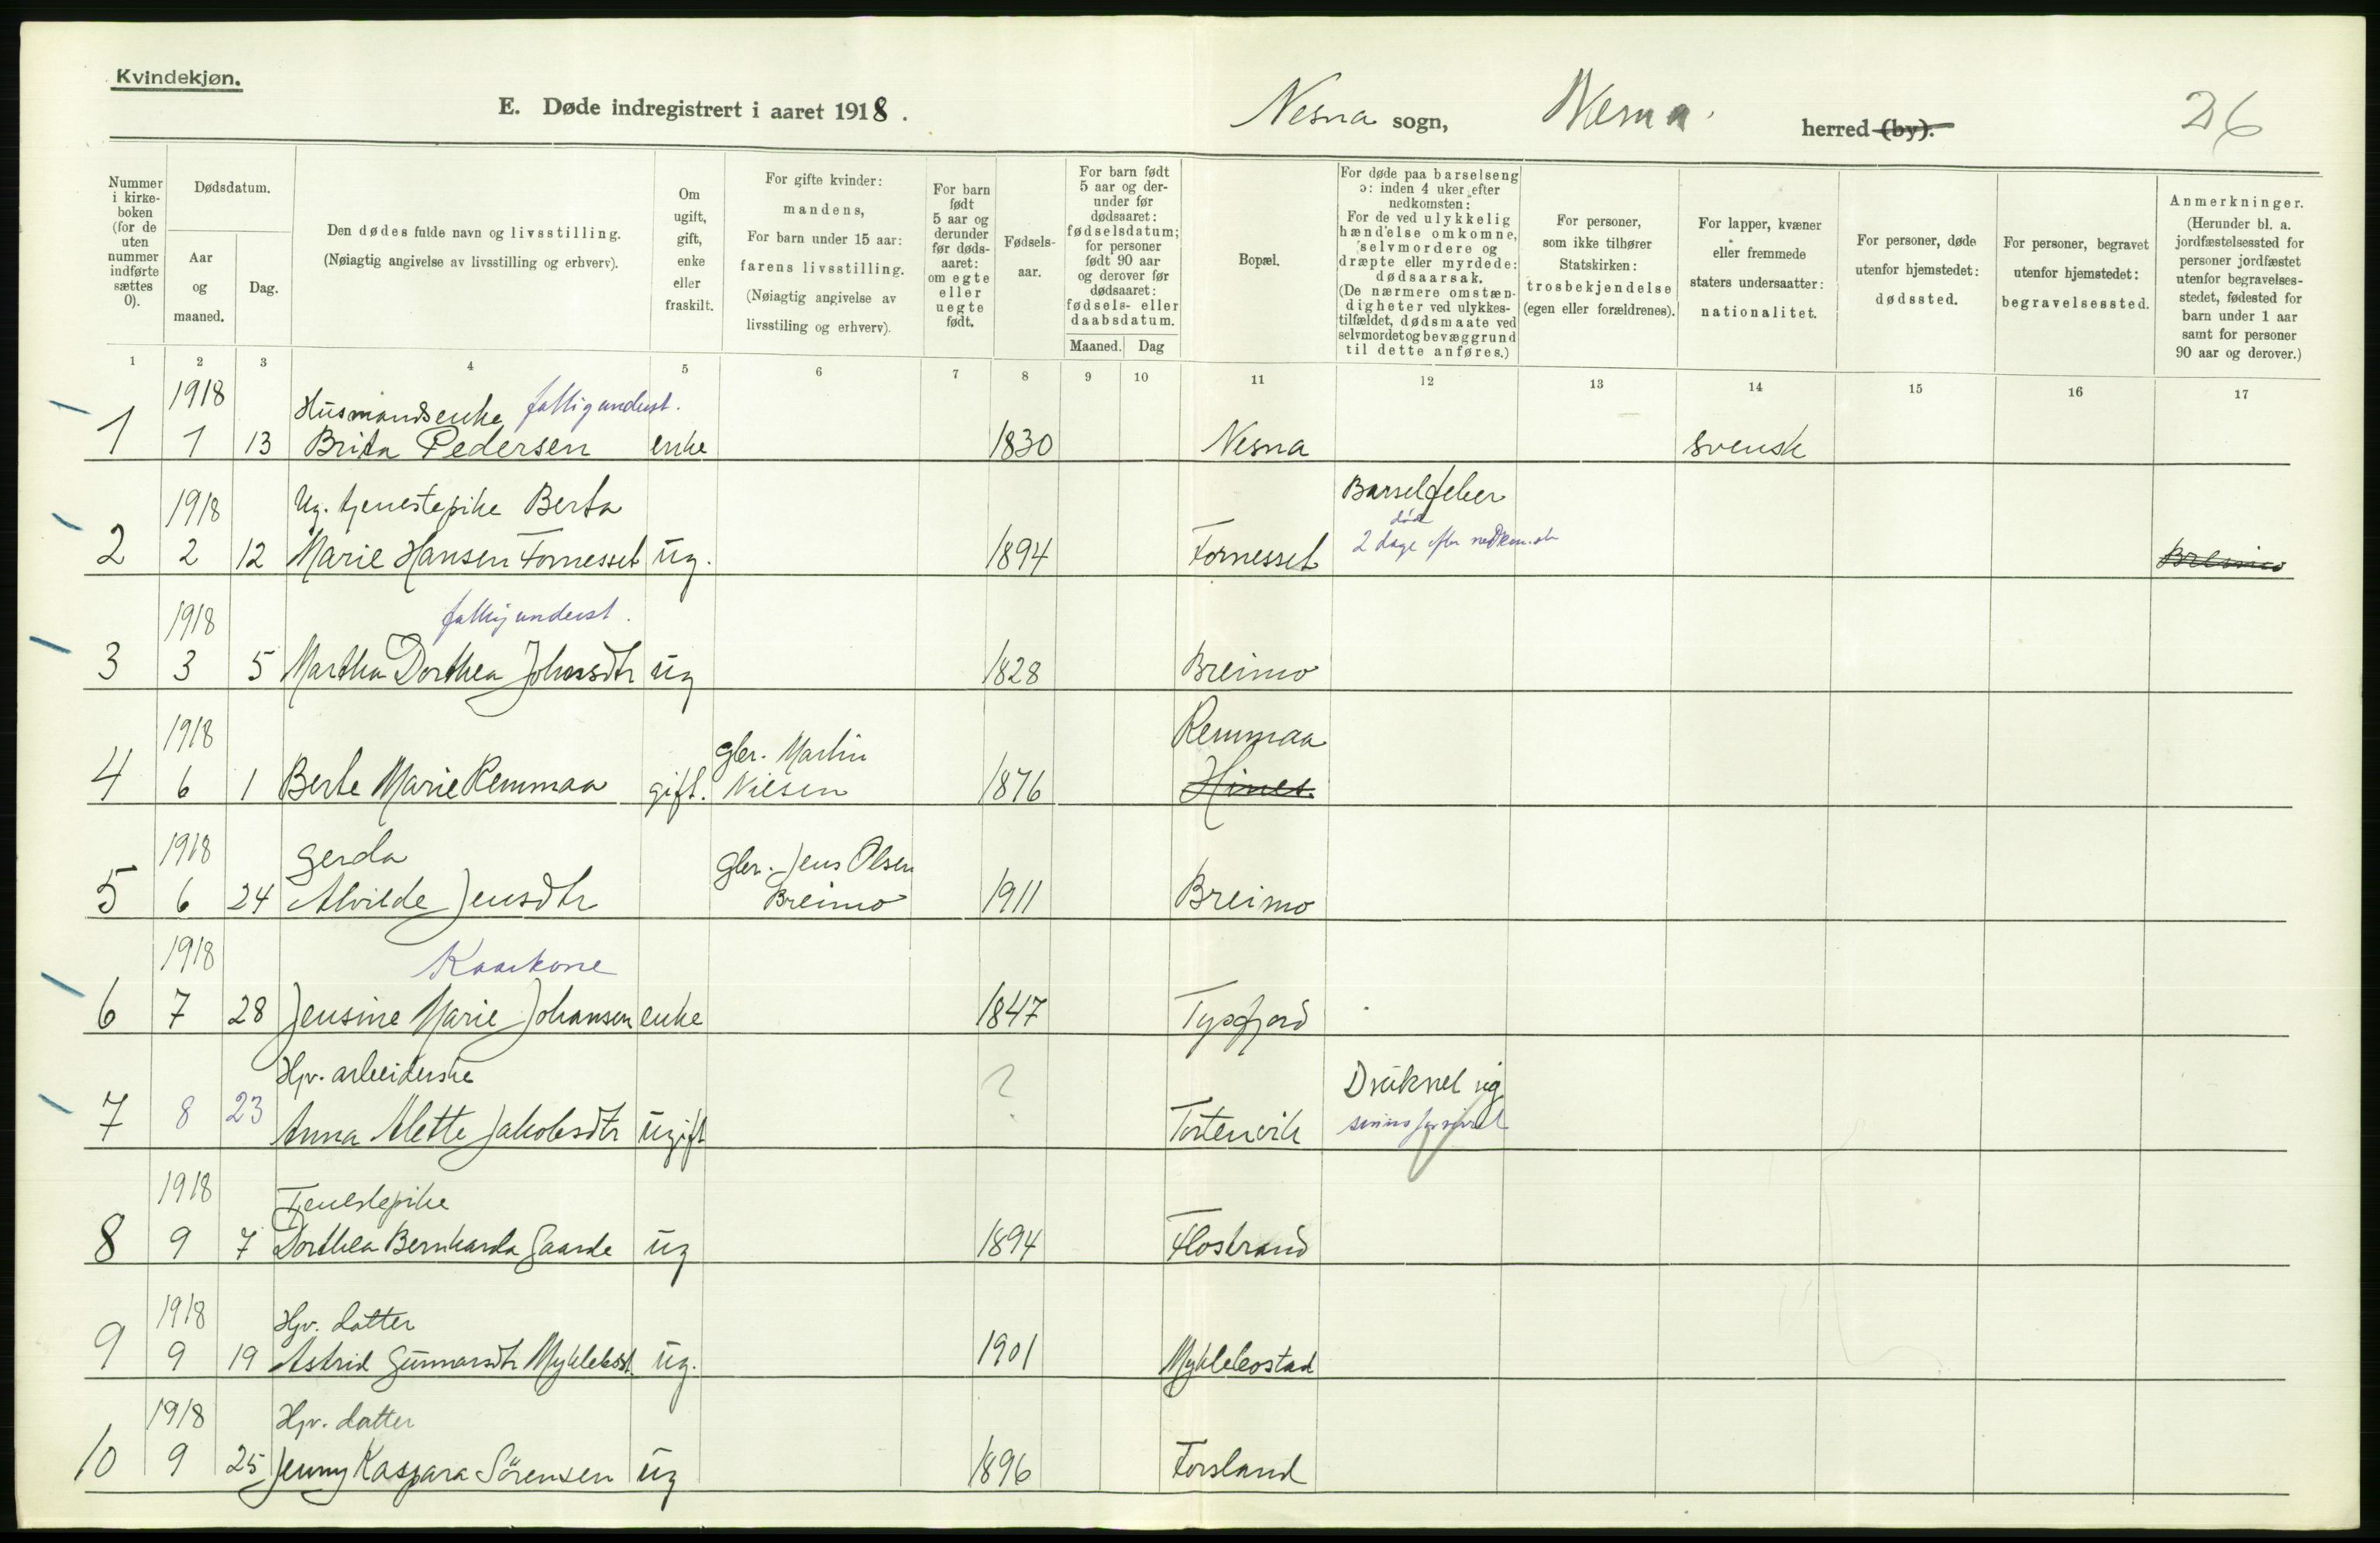 Kvindekjøn.
E. Døde indregistrert i aaret 1918.
Nesna sogn, Nesna herred (by).
26
Nummer i kirkeboken (for de uten nummer indførte sættes 0).
Dødsdatum.
Aar og maaned.
Dag.
Den dødes fulde navn og livsstilling.
(Nøiagtig angivelse av livsstilling og erhverv).
Om ugift, gift, enke eller fraskilt.
For gifte kvinder: mandens,
For barn under 15 aar: farens livsstilling.
(Nøiagtig angivelse av livsstiling og erhverv).
For barn født 5 aar og derunder før dødsaaret: om egte eller uegte født.
Fødselsaar.
For barn født 5 aar og derunder før dødsaaret: fødselsdatum; for personer født 90 aar og derover før dødsaaret: fødsels- eller daabsdatum.
Maaned. Dag
Bopæl.
For døde paa barselseng ɔ: inden 4 uker efter nedkomsten:
For de ved ulykkelig hændelse omkomne, selvmordere og dræpte eller myrdede: dødsaarsak.
(De nærmere omstændigheter ved ulykkestilfældet, dødsmaate ved selvmordet og bevæggrund til dette anføres.)
For personer, som ikke tilhører Statskirken: trosbekjendelse (egen eller forældrenes).
For lapper, kvæner eller fremmede staters undersaatter: nationalitet.
For personer, døde utenfor hjemstedet: dødssted.
For personer, begravet utenfor hjemstedet: begravelsessted.
Anmerkninger.
(Herunder bl. a. jordfæstelsessted for personer jordfæstet utenfor begravelsesstedet, fødested for barn under 1 aar samt for personer 90 aar og derover.)
1 2 3 4 5 6 7 8 9 10 11 12 13 14 15 16 17
1918 Husmandsenke fattigunderst.
1 1 13 Brita Pedersen enke 1830 Nesna svensk
1918 Ug. tjenestepike Berta Barselfeber
død
2 2 12 Marie Hansen Fornesset ug. 1894 Fornesset 2 dage efter Breimo
1918 fattigunderst.
3 3 5 Martha Dorthea Johnsdtr ug 1828 Breimo
1918 gbr. Martin Remmaa
4 6 1 Berte Marie Remmaa gift. Nilsen 1876
1918 Gerda Gbr. Jens Olsen
5 6 24 Alvilde Jensdtr Breimo 1911 Breimo
1918 Kaarkone
6 7 28 Jensine Marie Johansen enke 1847 Tysfjord
Hjv. arbeiderske ? Druknet sig
7 8 23 Anna Alette Jakobsdtr Ugift Tortenvik sinnsforvirret
1918 Tenestepike
8 9 7 Dorthea Bernharda Gaarde ug 1894 Flostrand
1918 Hjv. datter
9 9 19 Astrid Gunnarsdtr Myklebost. ug. 1901 Myklebostad
1918 Hjv. datter
10 9 25 Jenny Kaspara Sörensen ug 1896 Forsland